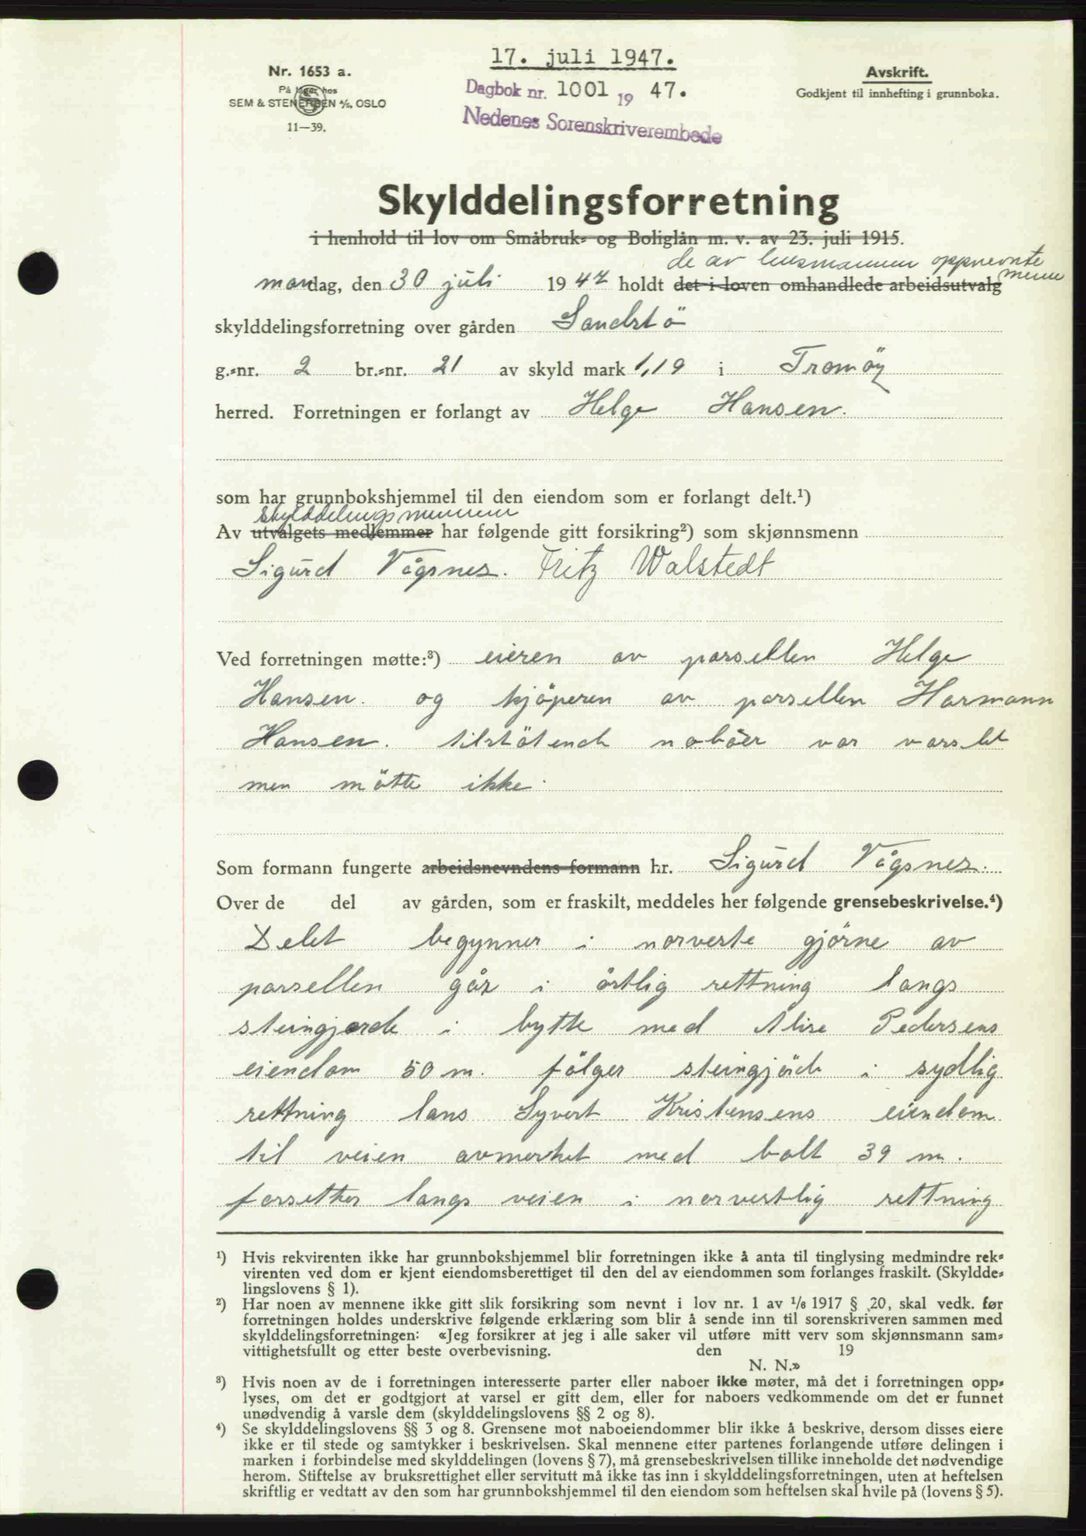 17. juli 1947.
Nr. 1653 a.
På lager hos
SEM & STENERSEN A/S, OSLO
11—39.
Dagbok nr. 1001 19 47.
Nedenes Sorenskriverembede
Avskrift.
Godkjent til innhefting i grunnboka.
Skylddelingsforretning
i henhold til lov om Småbruk- og Boliglån m. v. av 23. juli 1915.
de av lensmannen oppnevnte
menn
mandag, den 30 juli 1947 holdt det i loven omhandlede arbeidsutvalg
skylddelingsforretning over gården Sandstö
g.-nr. 2 br.-nr. 21 av skyld mark 1,19 i Tromöy
herred. Forretningen er forlangt av Helge Hansen.
som har grunnbokshjemmel til den eiendom som er forlangt delt.¹)
Skylddelingsmennene
Av utvalgets medlemmer har følgende gitt forsikring²) som skjønnsmenn
Sigurd Vågsnes. Fritz Walstedt
Ved forretningen møtte:³) eieren av parsellen Helge
Hansen. og kjöperen av parsellen Harmann
Hansen. tilstötende naboer var varslet
men mötte ikke.
Som formann fungerte arbeidsnevndens formann hr. Sigurd Vågsnes.
Over de del av gården, som er fraskilt, meddeles her følgende grensebeskrivelse.⁴)
Delet begynner i norveste gjörne av
parsellen går i östlig rettning langs
steingjerde i bytte med Alise Pedersens
eiendom 50 m. fölger steingjäde i sydlig
rettning lans Syvert Kristensens eiendom
til veien avmerket med bolt 39 m.
forsetter langs veien i norvestlig rettning
¹) Hvis rekvirenten ikke har grunnbokshjemmel blir forretningen ikke å anta til tinglysing medmindre rek-
virenten ved dom er kjent eiendomsberettiget til den del av eiendommen som forlanges fraskilt. (Skyldde-
lingslovens § 1).
²) Har noen av mennene ikke gitt slik forsikring som nevnt i lov nr. 1 av 1/6 1917 § 20, skal vedk. før
forretningen holdes underskrive følgende erklæring som blir å sende inn til sorenskriveren sammen med
skylddelingsforretningen: «Jeg forsikrer at jeg i alle saker vil utføre mitt verv som skjønnsmann sam-
vittighetsfullt og etter beste overbevisning. den 19
N. N.»
³) Hvis noen av de i forretningen interesserte parter eller naboer ikke møter, må det i forretningen opp-
lyses, om det er godtgjort at varsel er gitt dem, eller for naboers vedkommende om det er funnet
unødvendig å varsle dem (skylddelingslovens §§ 2 og 8).
⁴) Se skylddelingslovens §§ 3 og 8. Grensene mot naboeiendommer blir ikke å beskrive, dersom disses eiere
ikke er til stede og samtykker i beskrivelsen. Skal mennene etter partenes forlangende utføre delingen i
marken i forbindelse med skylddelingen (lovens § 7), må grensebeskrivelsen tillike inneholde det nødvendige
herom. Stiftelse av bruksrettighet eller servitutt må ikke tas inn i skylddelingsforretningen, uten at heftelsen
skriftlig er vedtatt av den som har grunnbokshjemmel til den eiendom som heftelsen skal hvile på (lovens § 5).